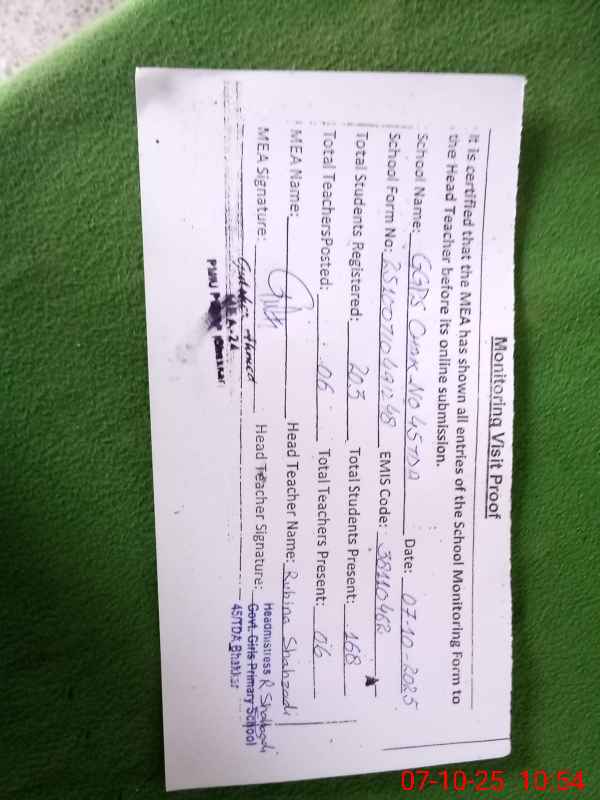 Monitoring Visit Proof
It is certified that the MEA has shown all entries of the School Monitoring Form to
the Head Teacher before its online submission.
School Name: GGPS Chak No 45 TDA Date: 07-10-2025
School Form No: EMIS Code: 38110462
Total Students Registered: 203 Total Students Present: 168
Total TeachersPosted: 06 Total Teachers Present: 06
MEA Name: Head Teacher Name: Rubina Shahzadi
MEA Signature: Ahmed Head Teacher Signature: R Shahzadi
MEA-24
PMIU Bhakkar
Headmistress
Govt. Girls Primary School
45/TDA Bhakkar
07-10-25 10:54